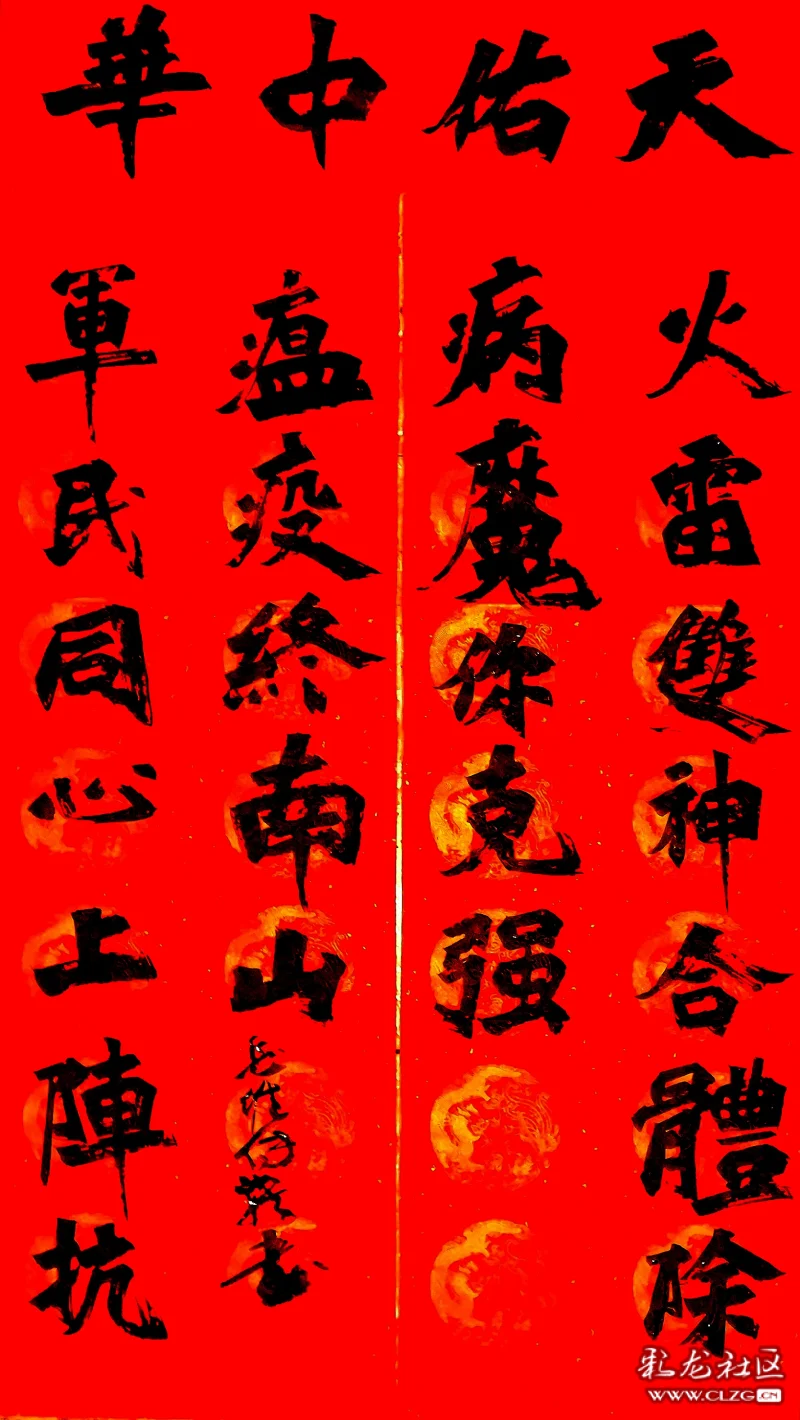 天佑中華
火雷雙神合體除
病魔你克强
軍民同心上陣抗
瘟疫終南山
书
彩龙社区
WWW.CLZG.CN